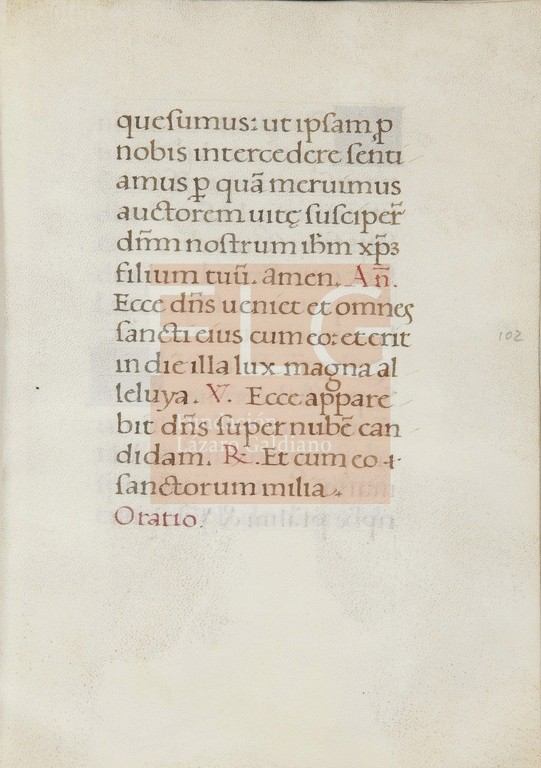 queſumus: ut ipſam ꝑ
nobis intercedere ſenti
amus ꝑ quã meruimus
auctorem uitę ſuſciper̃
dñm noſtrum ihm̃ xp̃ꝫ
filium tuũ. amen. An̄.
Ecce dñs ueniet et omnes
ſancti eius cum eo: et erit
in die illa lux magna al
leluya. V. Ecce appare
bit dñs ſuper nubẽ can
didam. R̃. Et cum eo ·i·
ſanctorum milia.
Oratio.
102
FLG
Fundación
Lázaro Galdiano